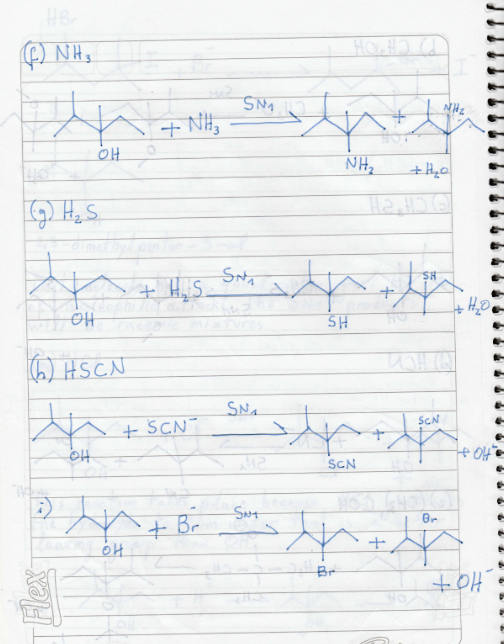 (f) NH₃
OH + NH₃ SN1 NH₂ + NH₂ + H₂O
(g) H₂S
OH + H₂S SN1 SH + SH + H₂O
(h) HSCN
OH + SCN⁻ SN1 SCN + SCN + OH⁻
i)
OH + Br⁻ SN1 Br + Br + OH⁻
Flex